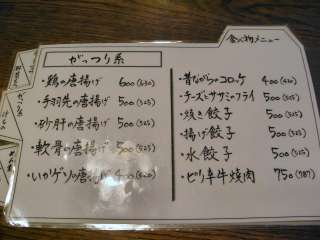 食べ物メニュー
がっつり系
・鶏の唐揚げ 600(630)
・手羽先の唐揚げ 500(525)
・砂肝の唐揚げ 500(525)
・軟骨の唐揚げ 500(525)
・いかゲソの唐揚げ 400
・昔ながらのコロッケ 400(420)
・チーズとササミのフライ 500(525)
・焼き餃子 500(525)
・揚げ餃子 500(525)
・水餃子 500(525)
・ピリ辛牛焼肉 750(787)